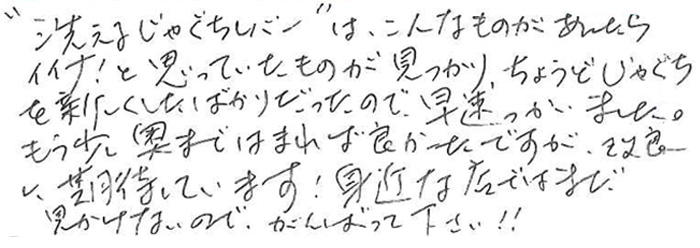 "洗えるじゃぐちレバー"は、こんなものがあったら
イイナ!と思っていたものが見つかり、ちょうどじゃぐち
を新しくしたばかりだったので、早速つかいました。
もう少し奥まではまれば良かったですが、改良
し、期待しています!身近な店ではまだ
見かけないので、がんばって下さい!!